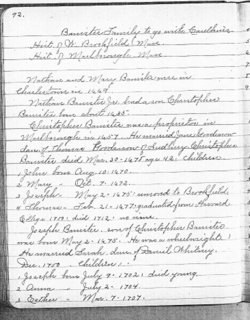 72.
Banister Family to go with Cauthers
Hist. of W. Brookfield, Mass
Hist. of Marlborough, Mass
Nathan and Mary Banister were in
Charlestown in 1664.
Nathan Banister Jr. had a son Christopher
Banister born about 1635.
Christopher Banister was a proprietor in
Marlborough in 1657. He married Jane Goodenow
dau. of Thomas Goodenow of Sudbury. Christopher
Banister died Mar. 30 - 1678 age 42 children
1 John born Aug. 10. 1670.
2 Mary - Oct. 9. 1672.
3 Joseph May 2. 1675 moved to Brookfield.
4 Thomas Feb. 21. 1677 graduated from Harvard
College died no issue.
Joseph Banister, son of Christopher Banister
was born May 2. 1675. He was a wheelwright.
He married Sarah, dau. of Daniel Whitney.
Dec. Children -
1 Joseph born July 9. 1702; died young.
2 Anna July 2. 1704.
3 Mar. 7. 1707.